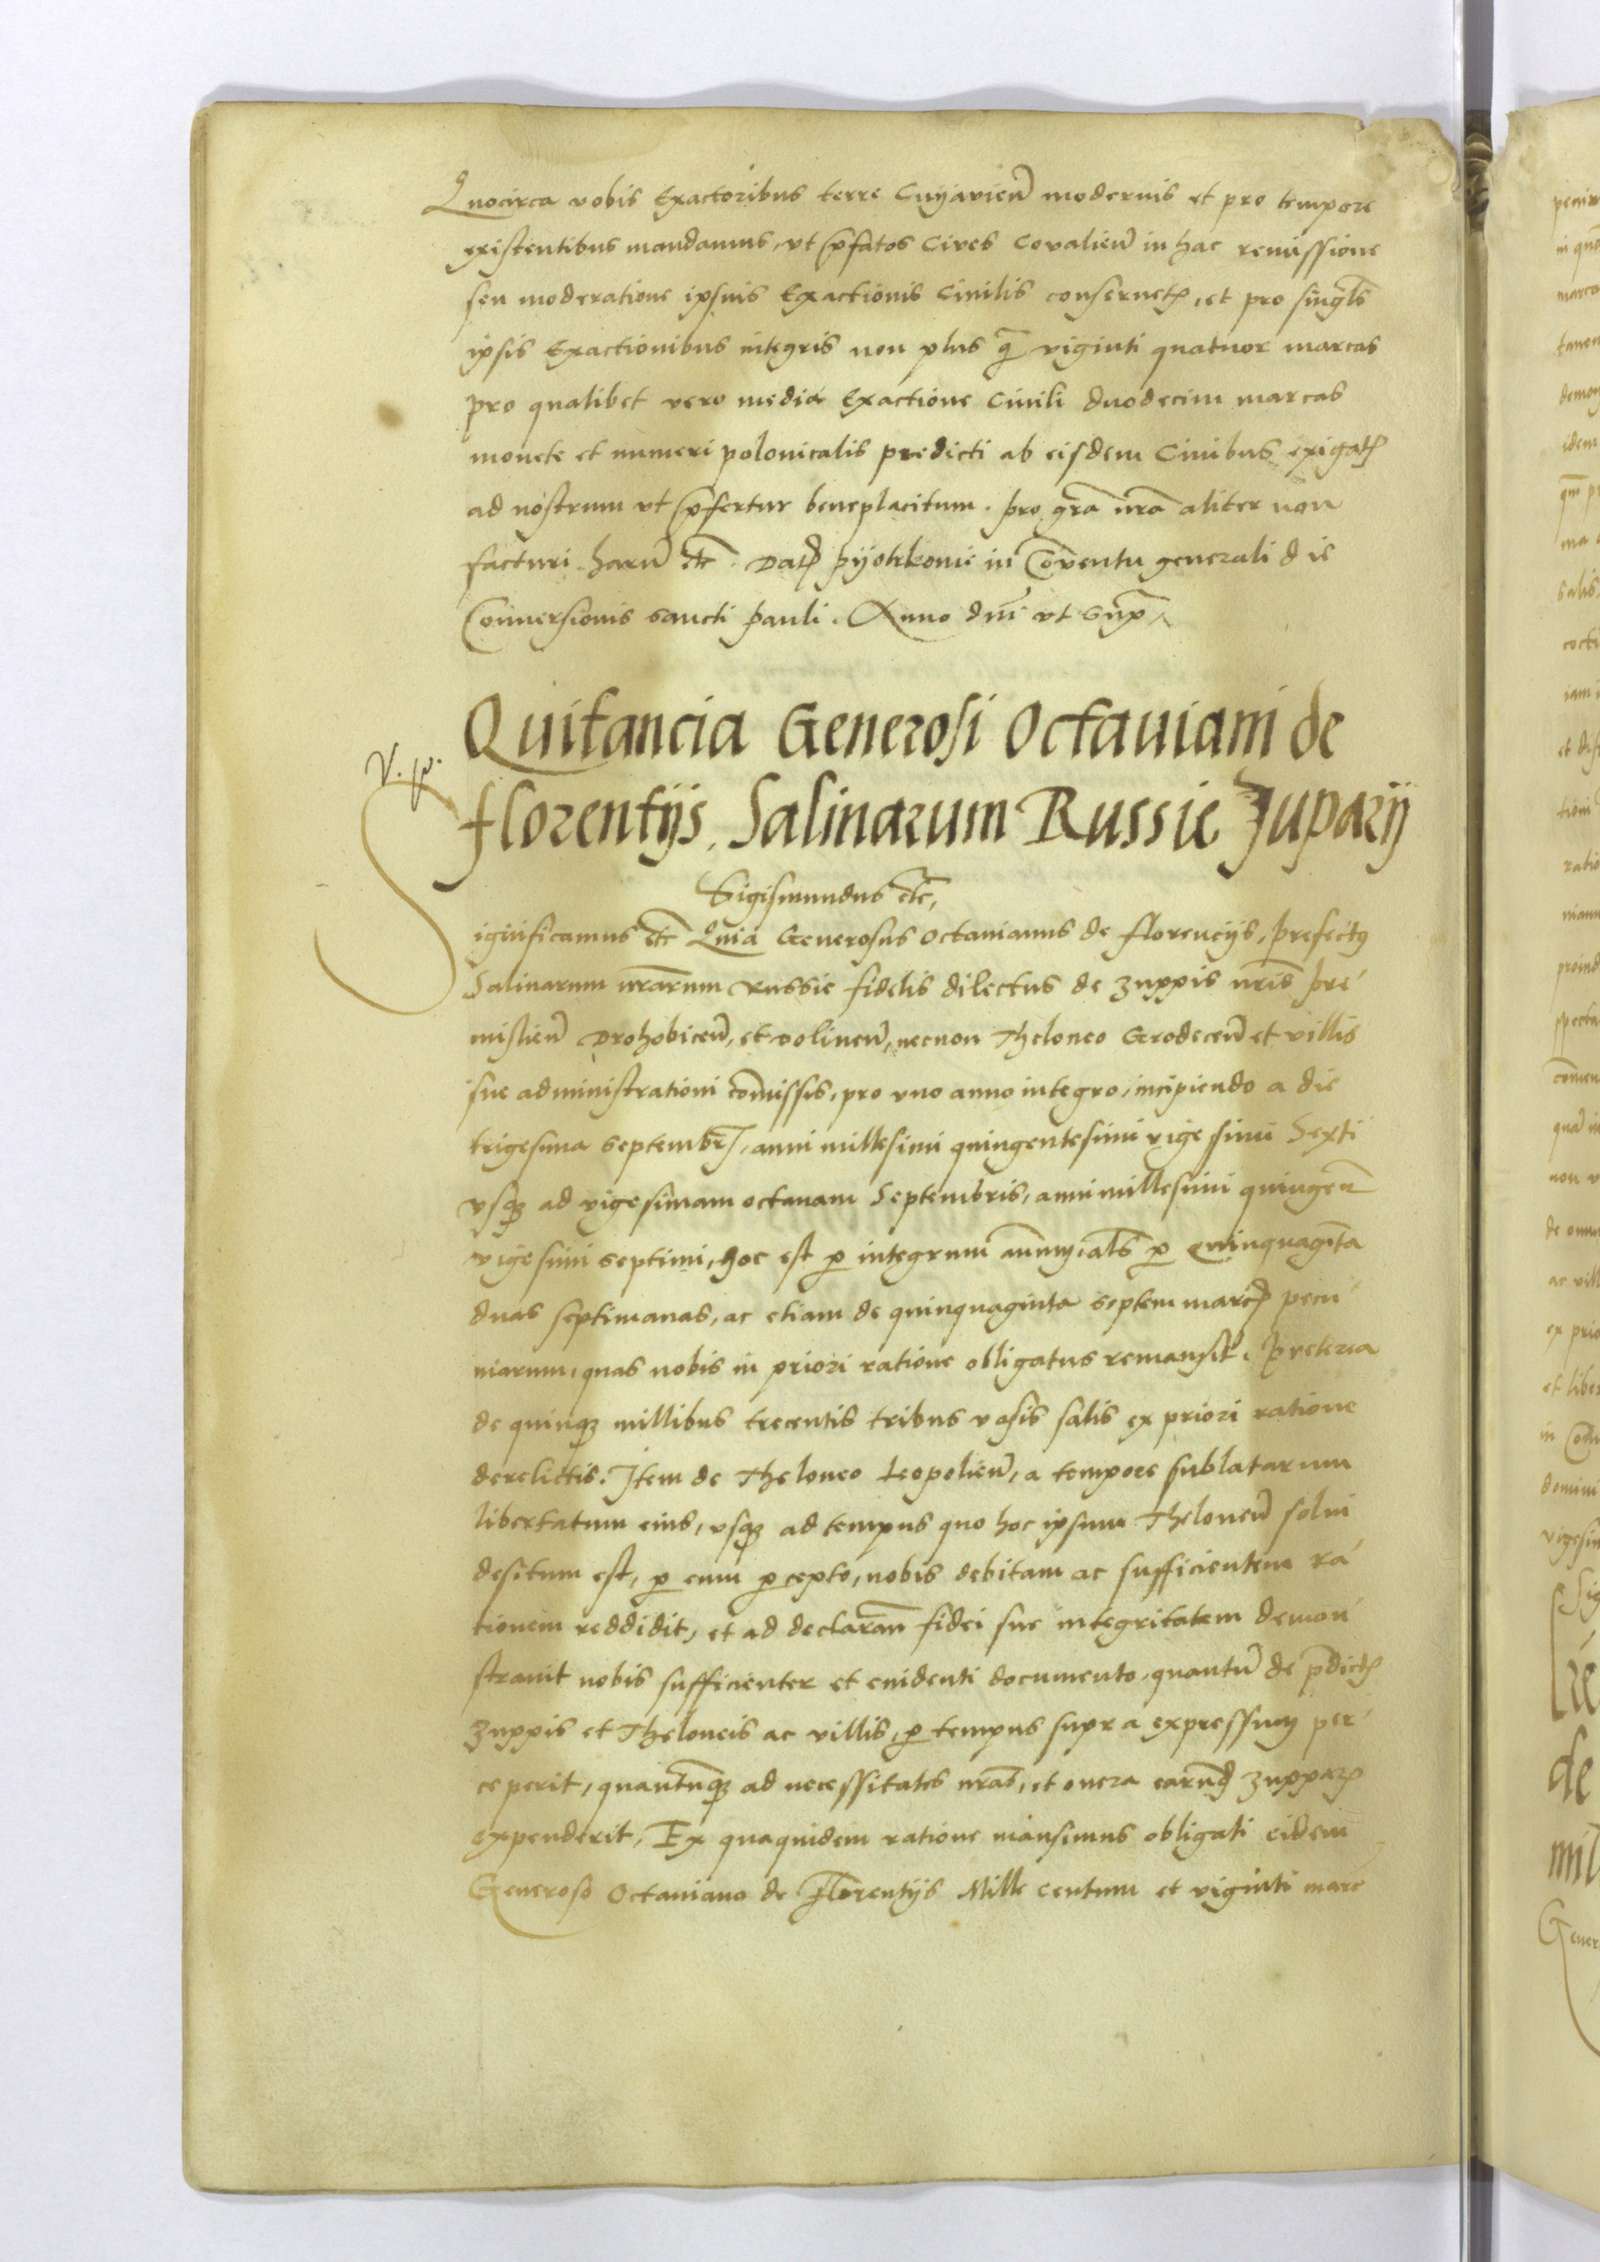 Quocirca vobis Exactoribus terre Cuyavien̄ modernis et pro tempore
existentibus mandamus, vt p̄fatos Cives Covalien̄ in hac remissione
seu moderatione ipsius Exactionis Civilis conseruetꝭ, et pro singl̄s
ipsis Exactionibus integris non plus q̄ viginti quatuor marcas
pro qualibet vero media Exactione Civili duodecim marcas
monete et numeri polonicalis predicti ab eisdem Civibus exigatꝭ
ad nostrum vt p̄fertur beneplacitum. pro gr̄a nr̄a aliter non
facturi. harū etc̄. Datꝭ pyotrkovie in Cōventu generali die
Conversionis sancti pauli. Anno dn̄i vt sup̄.
Quitancia Generosi Octauiani de
V. p.
florentijs, Salinarum Russie Zuparij
Sigismundus etc̄,
Significamus etc̄ Quia Generosus Octauianus de florencijs, prefectꝰ
Salinarum nr̄arum Russie fidelis dilectus de zuppis nr̄is pre
mislien̄ Drohobicen̄, et Dolinen̄, necnon Theloneo Grodecen̄ et villis
sue administrationi cōmissis, pro vno anno integro, incipiendo a die
trigesima septembrꝭ, anni millesimi quingentesimi vigesimi Sexti
vsqꝫ ad vigesimam octauam Septembris, anni millesimi quingen̄
vigesimi septimi, hoc est ꝑ integrum annum, al̄s ꝑ quinquagīta
duas septimanas, ac etiam de quinquaginta septem marcꝭ pecu
niarum, quas nobis in priori ratione obligatus remansit. preterea
de quinqꝫ millibus trecentis tribus vasis salis ex priori ratione
derelictis. Item de Theloneo Leopolien̄, a tempore sublatarum
libertatum eius, vsqꝫ ad tempus quo hoc ipsum Thelonеū solui
desitum est, ꝑ eum ꝑcepto, nobis debitam ac sufficientem ra
tionem reddidit, et ad declaran̄ fidei sue integritatem demon
strauit nobis sufficienter et euidenti documento, quantū de p̄dictꝭ
zuppis et Theloneis ac villis, ꝑ tempus supra expressum per
ceperit, quantūqꝫ ad necessitates nr̄as, et onera earūdꝭ zupparꝭ
expenderit, Ex quaquidem ratione mansimus obligati eidem
Generoso Octauiano de Florentijs Mille centum et viginti marc̄